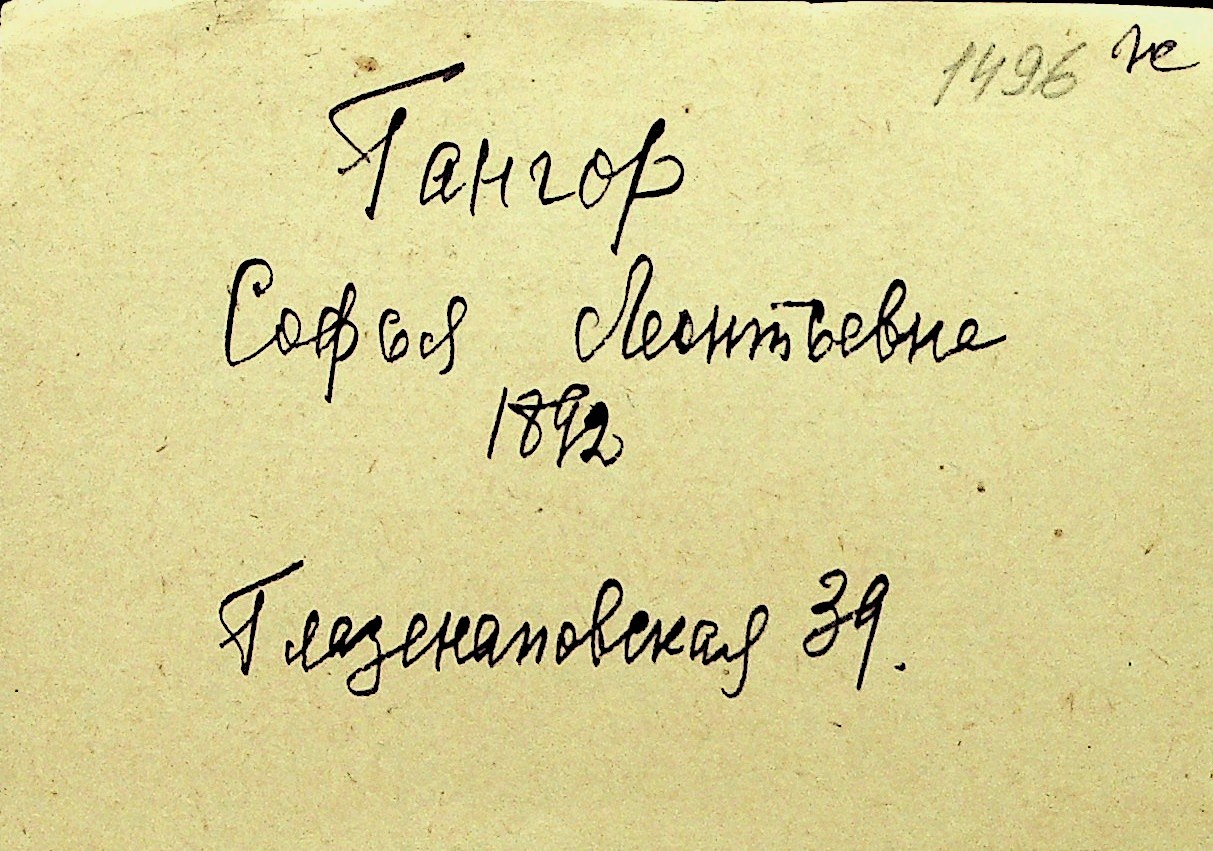 1496 ж
Гангор
Софья Леонтьевна
1892
Глазенаповская 39.